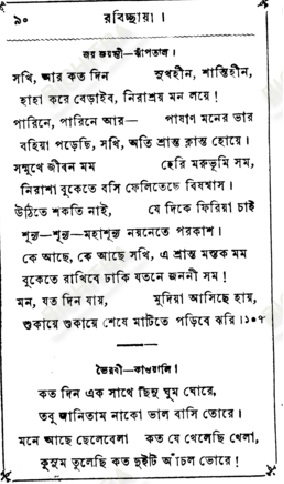 ৯০ রবিচ্ছায়া।
জয় জয়ন্তী—ঝাঁপতাল।
সখি, আর কত দিন সুখহীন, শান্তিহীন,
হাহা করে বেড়াইব, নিরাশ্রয় মন লয়ে!
পারিনে, পারিনে আর— পাষাণ মনের ভার
বহিয়া পড়েছি, সখি, অতি শ্রান্ত ক্লান্ত হোয়ে।
সম্মুখে জীবন মম হেরি মরুভূমি সম,
নিরাশা বুকেতে বসি ফেলিতেছে বিষশ্বাস।
উঠিতে শকতি নাই, যে দিকে ফিরিয়া চাই
শূন্য—শূন্য—মহাশূন্য নয়নেতে পরকাশ।
কে আছে, কে আছে সখি, এ শ্রান্ত মস্তক মম
বুকেতে রাখিবে ঢাকি যতনে জননী সম!
মন, যত দিন যায়, মুদিয়া আসিছে হায়,
শুকায়ে শুকায়ে শেষে মাটিতে পড়িবে ঝরি।১০৭
ভৈরবী—কাওয়ালি।
কত দিন এক সাথে ছিনু ঘুম ঘোরে,
তবু জানিতাম নাকো ভাল বাসি তোরে।
মনে আছে ছেলেবেলা কত যে খেলেছি খেলা,
কুসুম তুলেছি কত দুইটি আঁচল ভোরে!